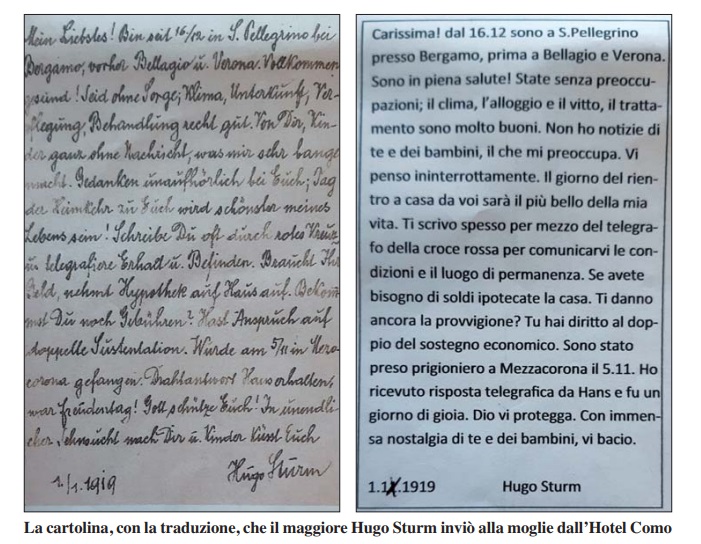 Mein Liebstes! Bin seit 16/12 in S. Pellegrino bei
Bergamo, vorher Bellagio u. Verona. Vollkommen
gesund! Seid ohne Sorge; Klima, Unterkunft, Ver-
pflegung, Behandlung recht gut. Von Dir, Kin-
der ganz ohne Nachricht, was mir sehr bange
macht. Gedanken unaufhörlich bei Euch; Tag
der Heimkehr zu Euch wird schönster meines
Lebens sein! Schreibe Du oft durch rotes Kreuz
u. telegrafiere Erhalt u. Befinden. Braucht Ihr
Geld, nehmt Hypothek auf Haus auf. Bekom-
mst Du noch Gebühren? Hast Anspruch auf
doppelte Sustentation. Wurde am 5/11 in Mezo-
corona gefangen. Drahtantwort Hans erhalten,
war Freudentag! Gott schütze Euch! In unendli-
cher Sehnsucht nach Dir u. Kinder küsst Euch
1./1. 1919 Hugo Sturm
Carissima! dal 16.12 sono a S.Pellegrino
presso Bergamo, prima a Bellagio e Verona.
Sono in piena salute! State senza preoccu-
pazioni; il clima, l'alloggio e il vitto, il tratta-
mento sono molto buoni. Non ho notizie di
te e dei bambini, il che mi preoccupa. Vi
penso ininterrottamente. Il giorno del rien-
tro a casa da voi sarà il più bello della mia
vita. Ti scrivo spesso per mezzo del telegra-
fo della croce rossa per comunicarvi le con-
dizioni e il luogo di permanenza. Se avete
bisogno di soldi ipotecate la casa. Ti danno
ancora la provvigione? Tu hai diritto al dop-
pio del sostegno economico. Sono stato
preso prigioniero a Mezzacorona il 5.11. Ho
ricevuto risposta telegrafica da Hans e fu un
giorno di gioia. Dio vi protegga. Con immen-
sa nostalgia di te e dei bambini, vi bacio.
1.1.1919 Hugo Sturm
La cartolina, con la traduzione, che il maggiore Hugo Sturm inviò alla moglie dall'Hotel Como